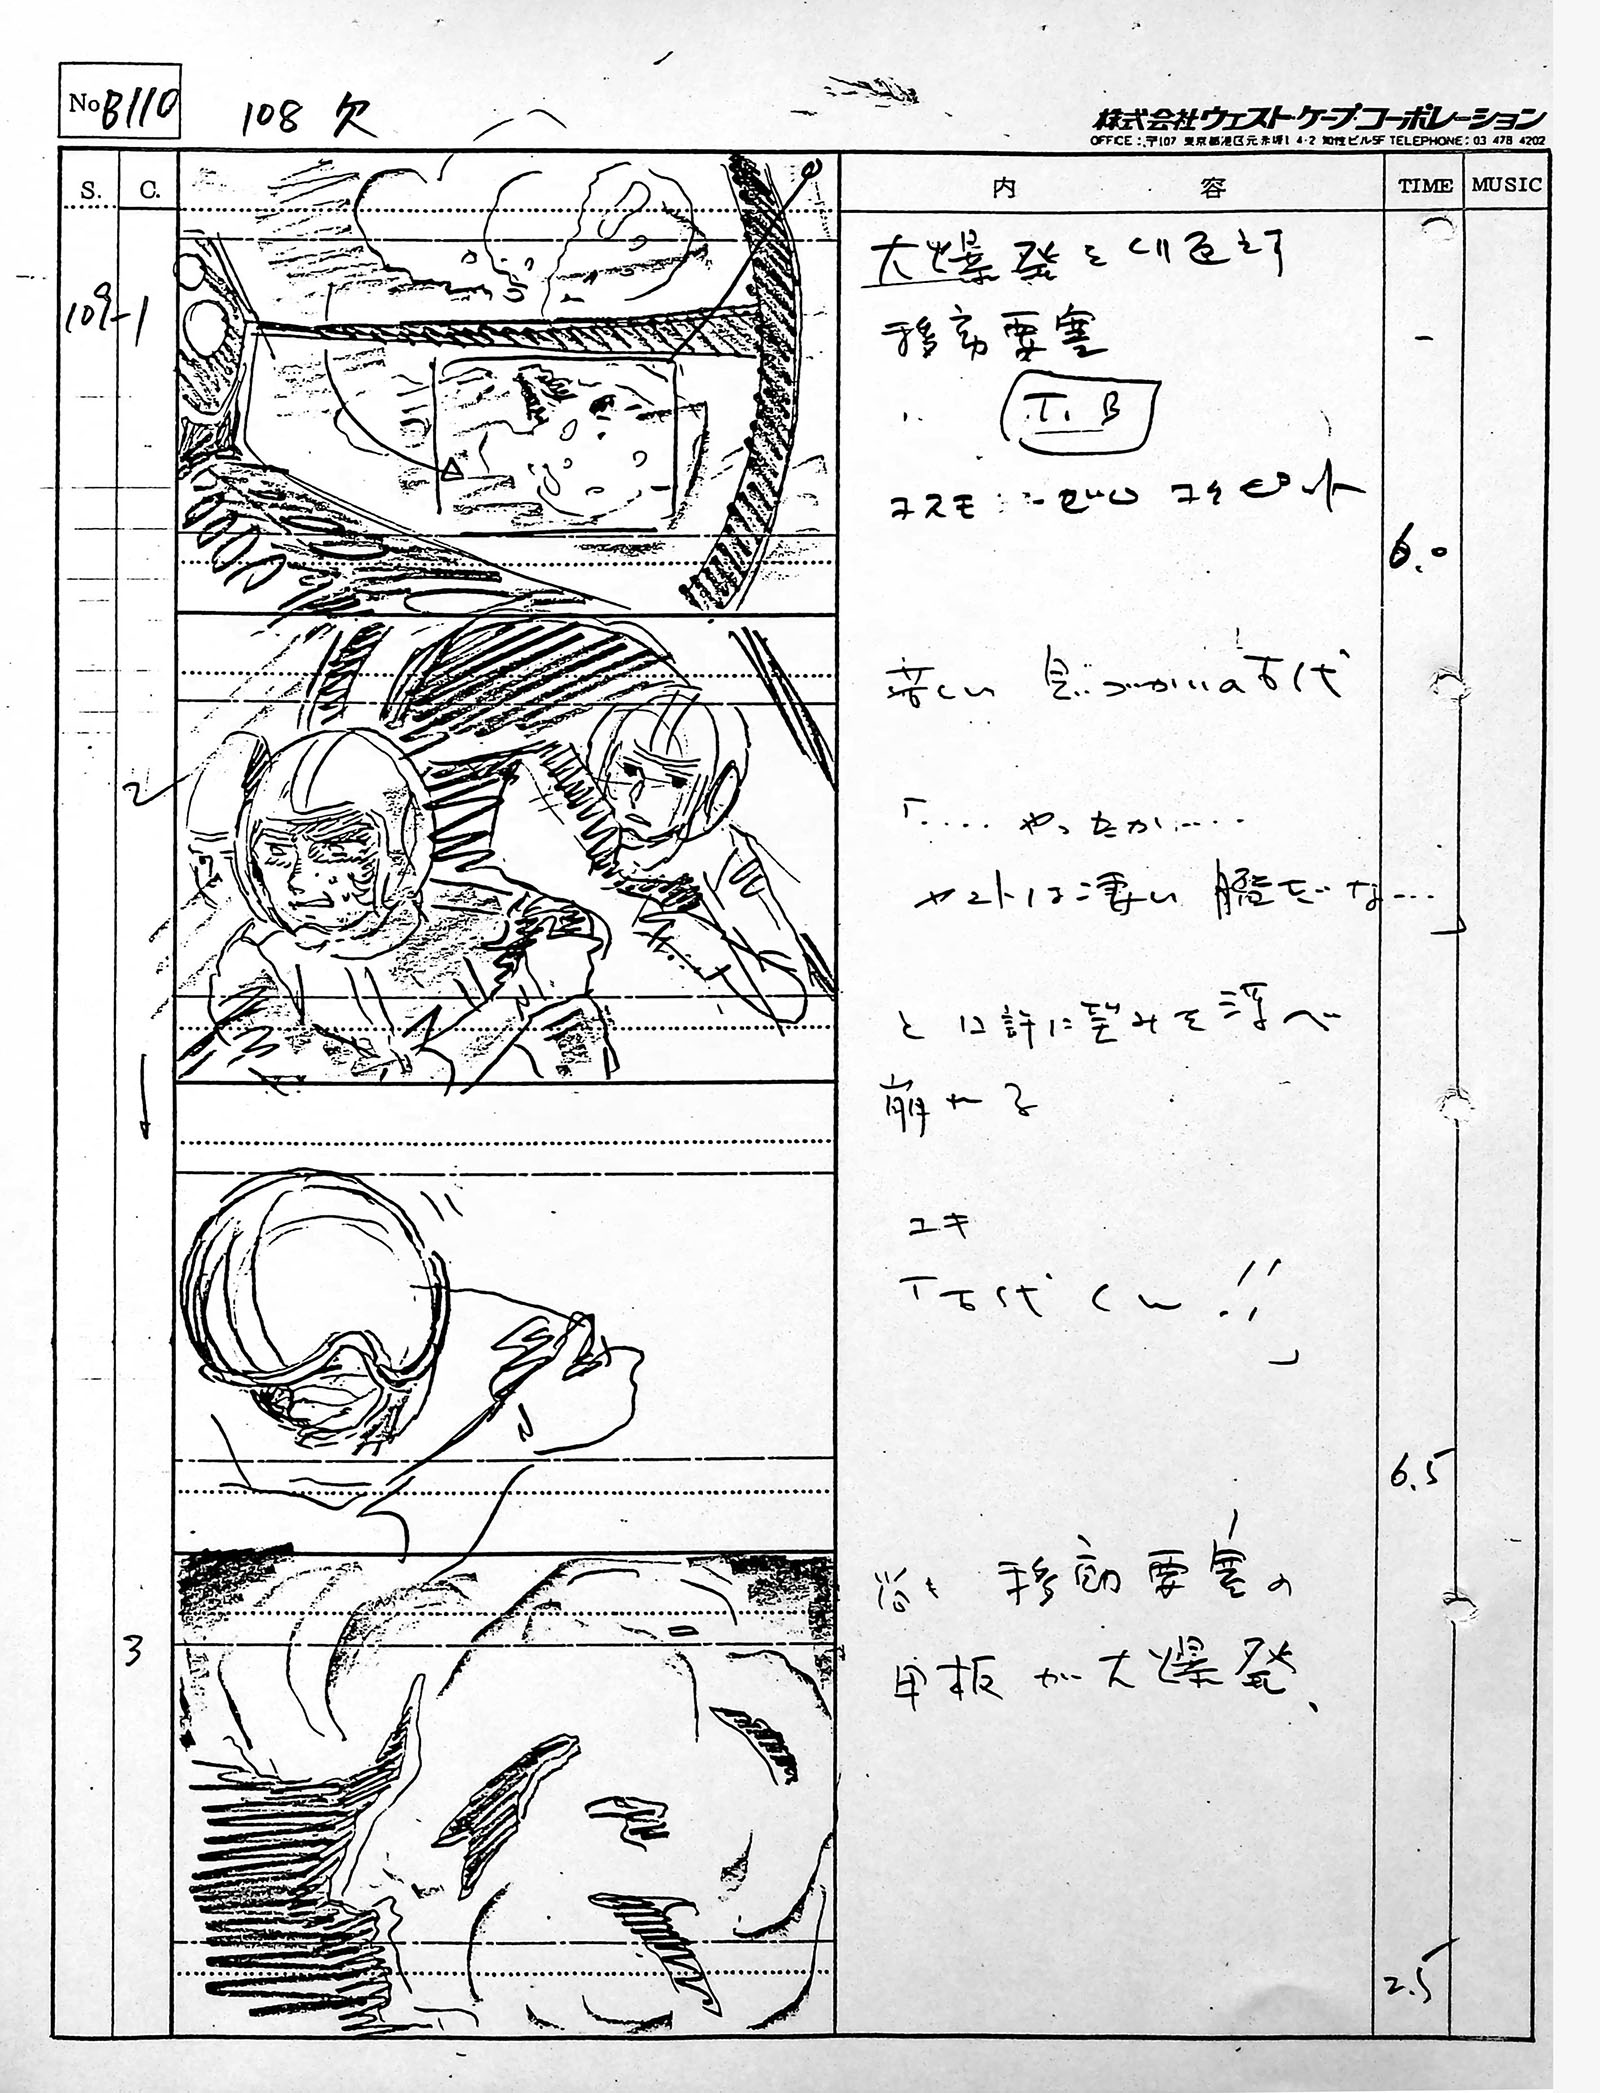 No B110
108 欠
株式会社ウエスト・ケープ・コーポレーション
OFFICE:〒107 東京都港区元赤坂1 4-2 ビル5F TELEPHONE:03 478 4202
S. C. 内容 TIME MUSIC
109-1
大爆発を
移動要塞
T.B
コスモ コクピット
6.0
苦しい 息づかいの古代
2
「....やったか.....
ヤマトは凄い艦だな...」
と 望みを浮べ
崩れる
ユキ
「古代くん!!」
6.5
3
尚も 移動要塞の
甲板が大爆発、
2.5